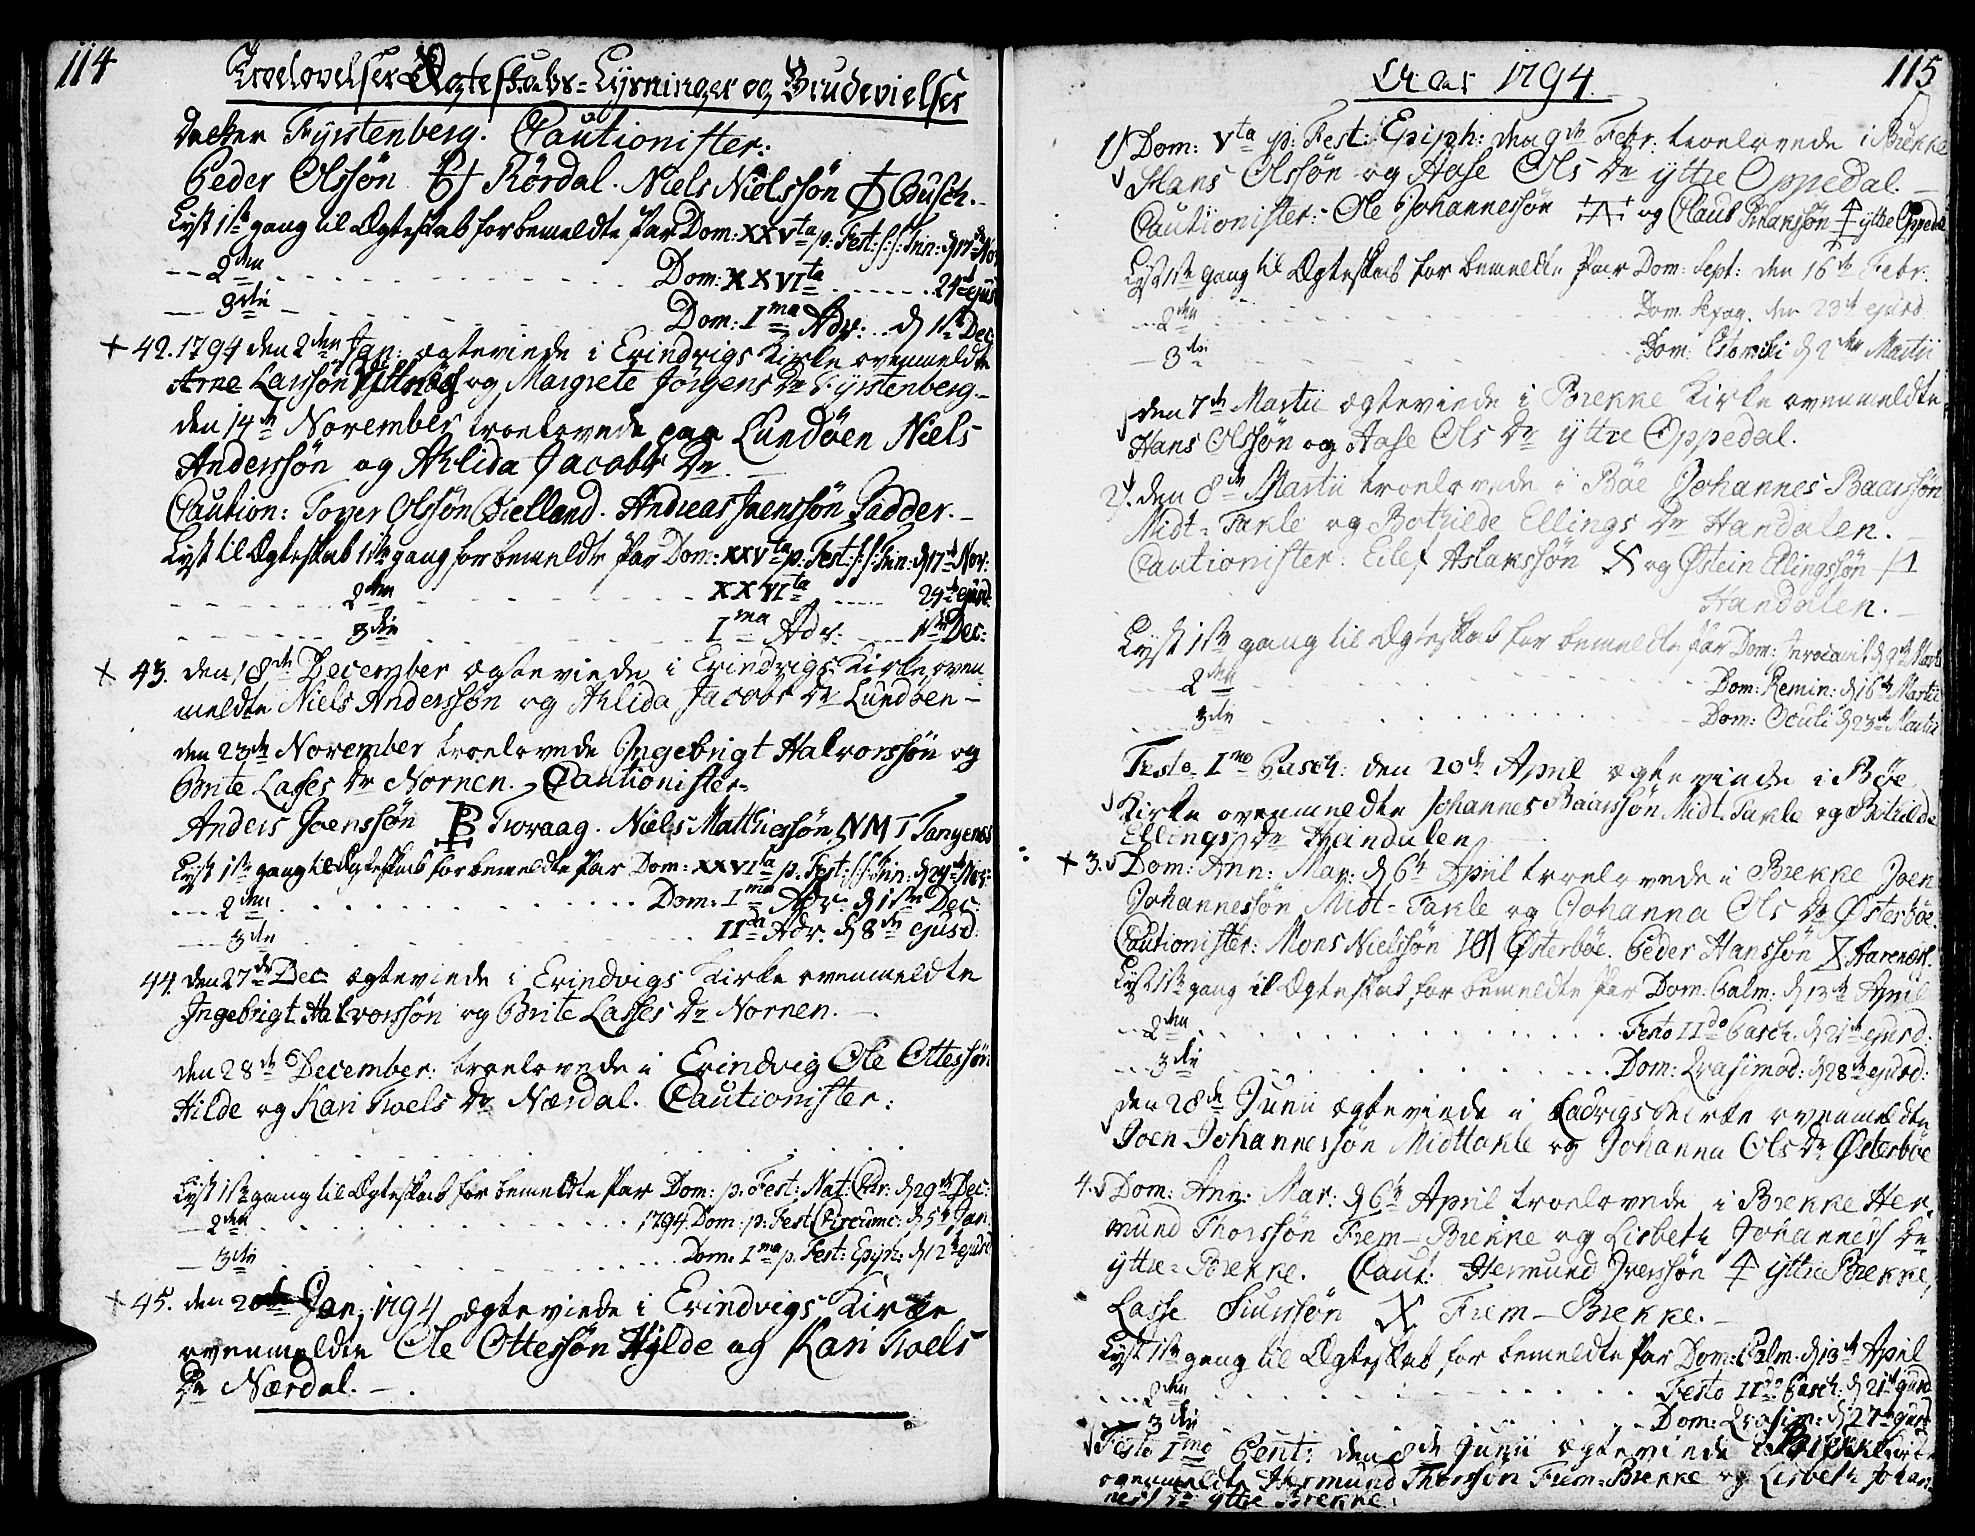 114
Troelovelser Ægteskabs-Lysninger og Brudevielser
Fyrstenberg. Cautionister:
Peder Olssön Rördal. Niels Nielssön Busch.
Lyst 1ste gang til Ægteskab for bemeldte Par Dom: XXVta p: Fest: S:S: Trin: d 17de Nov
--- 2den - - - Dom: XXVIta - - - 24de ejus
--- 3die - - - Dom: Ima Adv: d 1ste Dec
+ 42. 1794 den 2den Jan: ægteviede i Evindvigs Kirke ovenmeldte
Arne Larssön og Margrete Jörgens Dr Fyrstenberg.-
den 14de November troelovede paa Lundöen Niels
Anderssön og Ahlida Jacobs Dr
Caution: Olssön Gielland. Andreas Joenssön Sadder.-
Lyst til Ægteskab 1ste gang for bemeldte Par Dom: XXVta p: Fest: S:S: Trin: d 17de Nov:
2den - - - XXVIta - - - 24de ejusd:
3die - - - Ima Adv: - - - 1ste Dec:
+ 43. den 18de December ægteviede i Evindvigs Kirke oven
meldte Niels Anderssön og Ahlida Jacobs Dr Lundöen -
den 23de November troelovede Ingebrigt Halvorssön og
Brite Lasses Dr Nornen. Cautionister:
Anders Joenssön Toraag. Niels Matthiessön NM Tangenes
Lyst 1ste gang til Ægteskab for bemeldte Par Dom: XXVIta p: Fest: S:S: Trin: d 24de Nov:
--- 2den - - - Dom: Ima Adv: d 1ste Dec:
--- 3die - - - IIda Adv: d 8de ejusd:
44. den 27de Dec ægteviede i Evindvigs Kirke ovenmeldte
Ingebrigt Halvorssön og Brite Lasses Dr Nornen. -
den 28de December: troelovede i Evindvig Ole Ottessön
Hilde og Kari Roels Dr Nærdal. Cautionister:
Lyst 1ste gang til Ægteskab for bemeldte Par Dom: p: Fest: Nat: Chr: d 29de Dec:
- 2den - - - 1794 Dom: p: Fest Circumc: d 5te Jan.
- 3die - - - Dom: Ima p: Fest: Epiph: d 12te ejusd
+ 45. den Jan. 1794 ægteviede i Evindvigs Kirke
ovenmeldte Ole Ottessön Hylde og Kari Roels
Dr Nærdal. -
115
Anno 1794.
1) Dom: Vta p: Fest: Epiph: den 9de Febr: troelovede i Brekke
Hans Olssön og Aase Ols Dr yttre Oppedal. -
Cautionister: Ole Johannessön og Claus Johanssön yttre Oppedal
Lyst 1ste gang til Ægteskab for bemeldte Par Dom: Sept: den 16de Febr:
--- 2den - - - Dom Sexag. den 23de ejusd.
- 3die - - - Dom: Estomihi d 2den Martii
den 7de Martii ægteviede i Brekke Kirke ovenmeldte
Hans Olssön og Aase Ols Dr yttre Oppedal.
2). den 8de Martii troelovede i Böe Johannes Baarssön
Midt-Takle og Bothilde Ellings Dr Handalen.
Cautionister: Eilef Aslakssön og Östein Ellingssön
Handalen. -
Lyst 1ste gang til Ægteskab for bemeldte Par Dom: Invocavit d 9de Martii
--- 2den - - - Dom: Remin: d 16de Martii
--- 3die - - - Dom: Oculi d 23de Martii
Festo Imo Pasch: den 20de April ægteviede i Böe
Kirke ovenmeldte Johannes Baarssön Midt-Takle og Botilde
Ellings Dr Handalen
+ 3. Dom: Ann: Mar: d 6te April troelovede i Brekke Joen
Johannessön Midt-Takle og Johanna Ols Dr Österböe.
Cautionister: Mons Nielssön Österböe. Peder Hanssön
Lyst 1ste gang til Ægteskab for bemeldte Par Dom: Palm: d 13de April
--- 2den - - - Festo IIdo Pasch: d 21de ejusd:
--- 3die - - - Dom: Qvasimod: d 28de ejusd:
den 28de Junii ægteviede i Ladvigs Kirke ovenmeldte
Joen Johannessön Midttakle og Johanna Ols Dr Österböe
4. Dom: Ann: Mar: d 6te April troelovede i Brekke Her-
mund Thorssön Frem-Brekke og Lisbeth Johanness Dr
yttre-Brekke. Caut: Hermund Iverssön yttre Brekke,
Lasse Siurssön Frem-Brekke. -
Lyst 1ste gang til Ægteskab for bemeldte Par Dom: Palm. d 13de April
--- 2den - - - Festo IIdo Pasch: d 21de ejusd
3die - - - Dom: Qvasim: d 27de ejusd
Festo Imo Pent: den 8de Junii ægteviede i Brekke
ovenmeldte Hermund Thorssön Frem-Brekke og Lisbeth Johan-
ness Dr yttre Brekke.